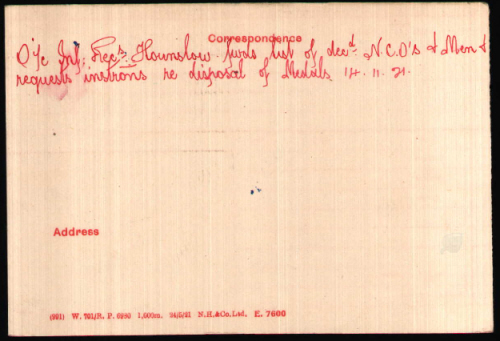 Correspondence
O'i/c Inf: Recs. Hounslow. fwds list of decd. N.C.O's & Men &
requests instrons re disposal of Medals 14. 11. 21.
Address
(991) W. 701/R. P. 6980 1,500m. 24/5/21 N.H.&Co.Ltd. E. 7600